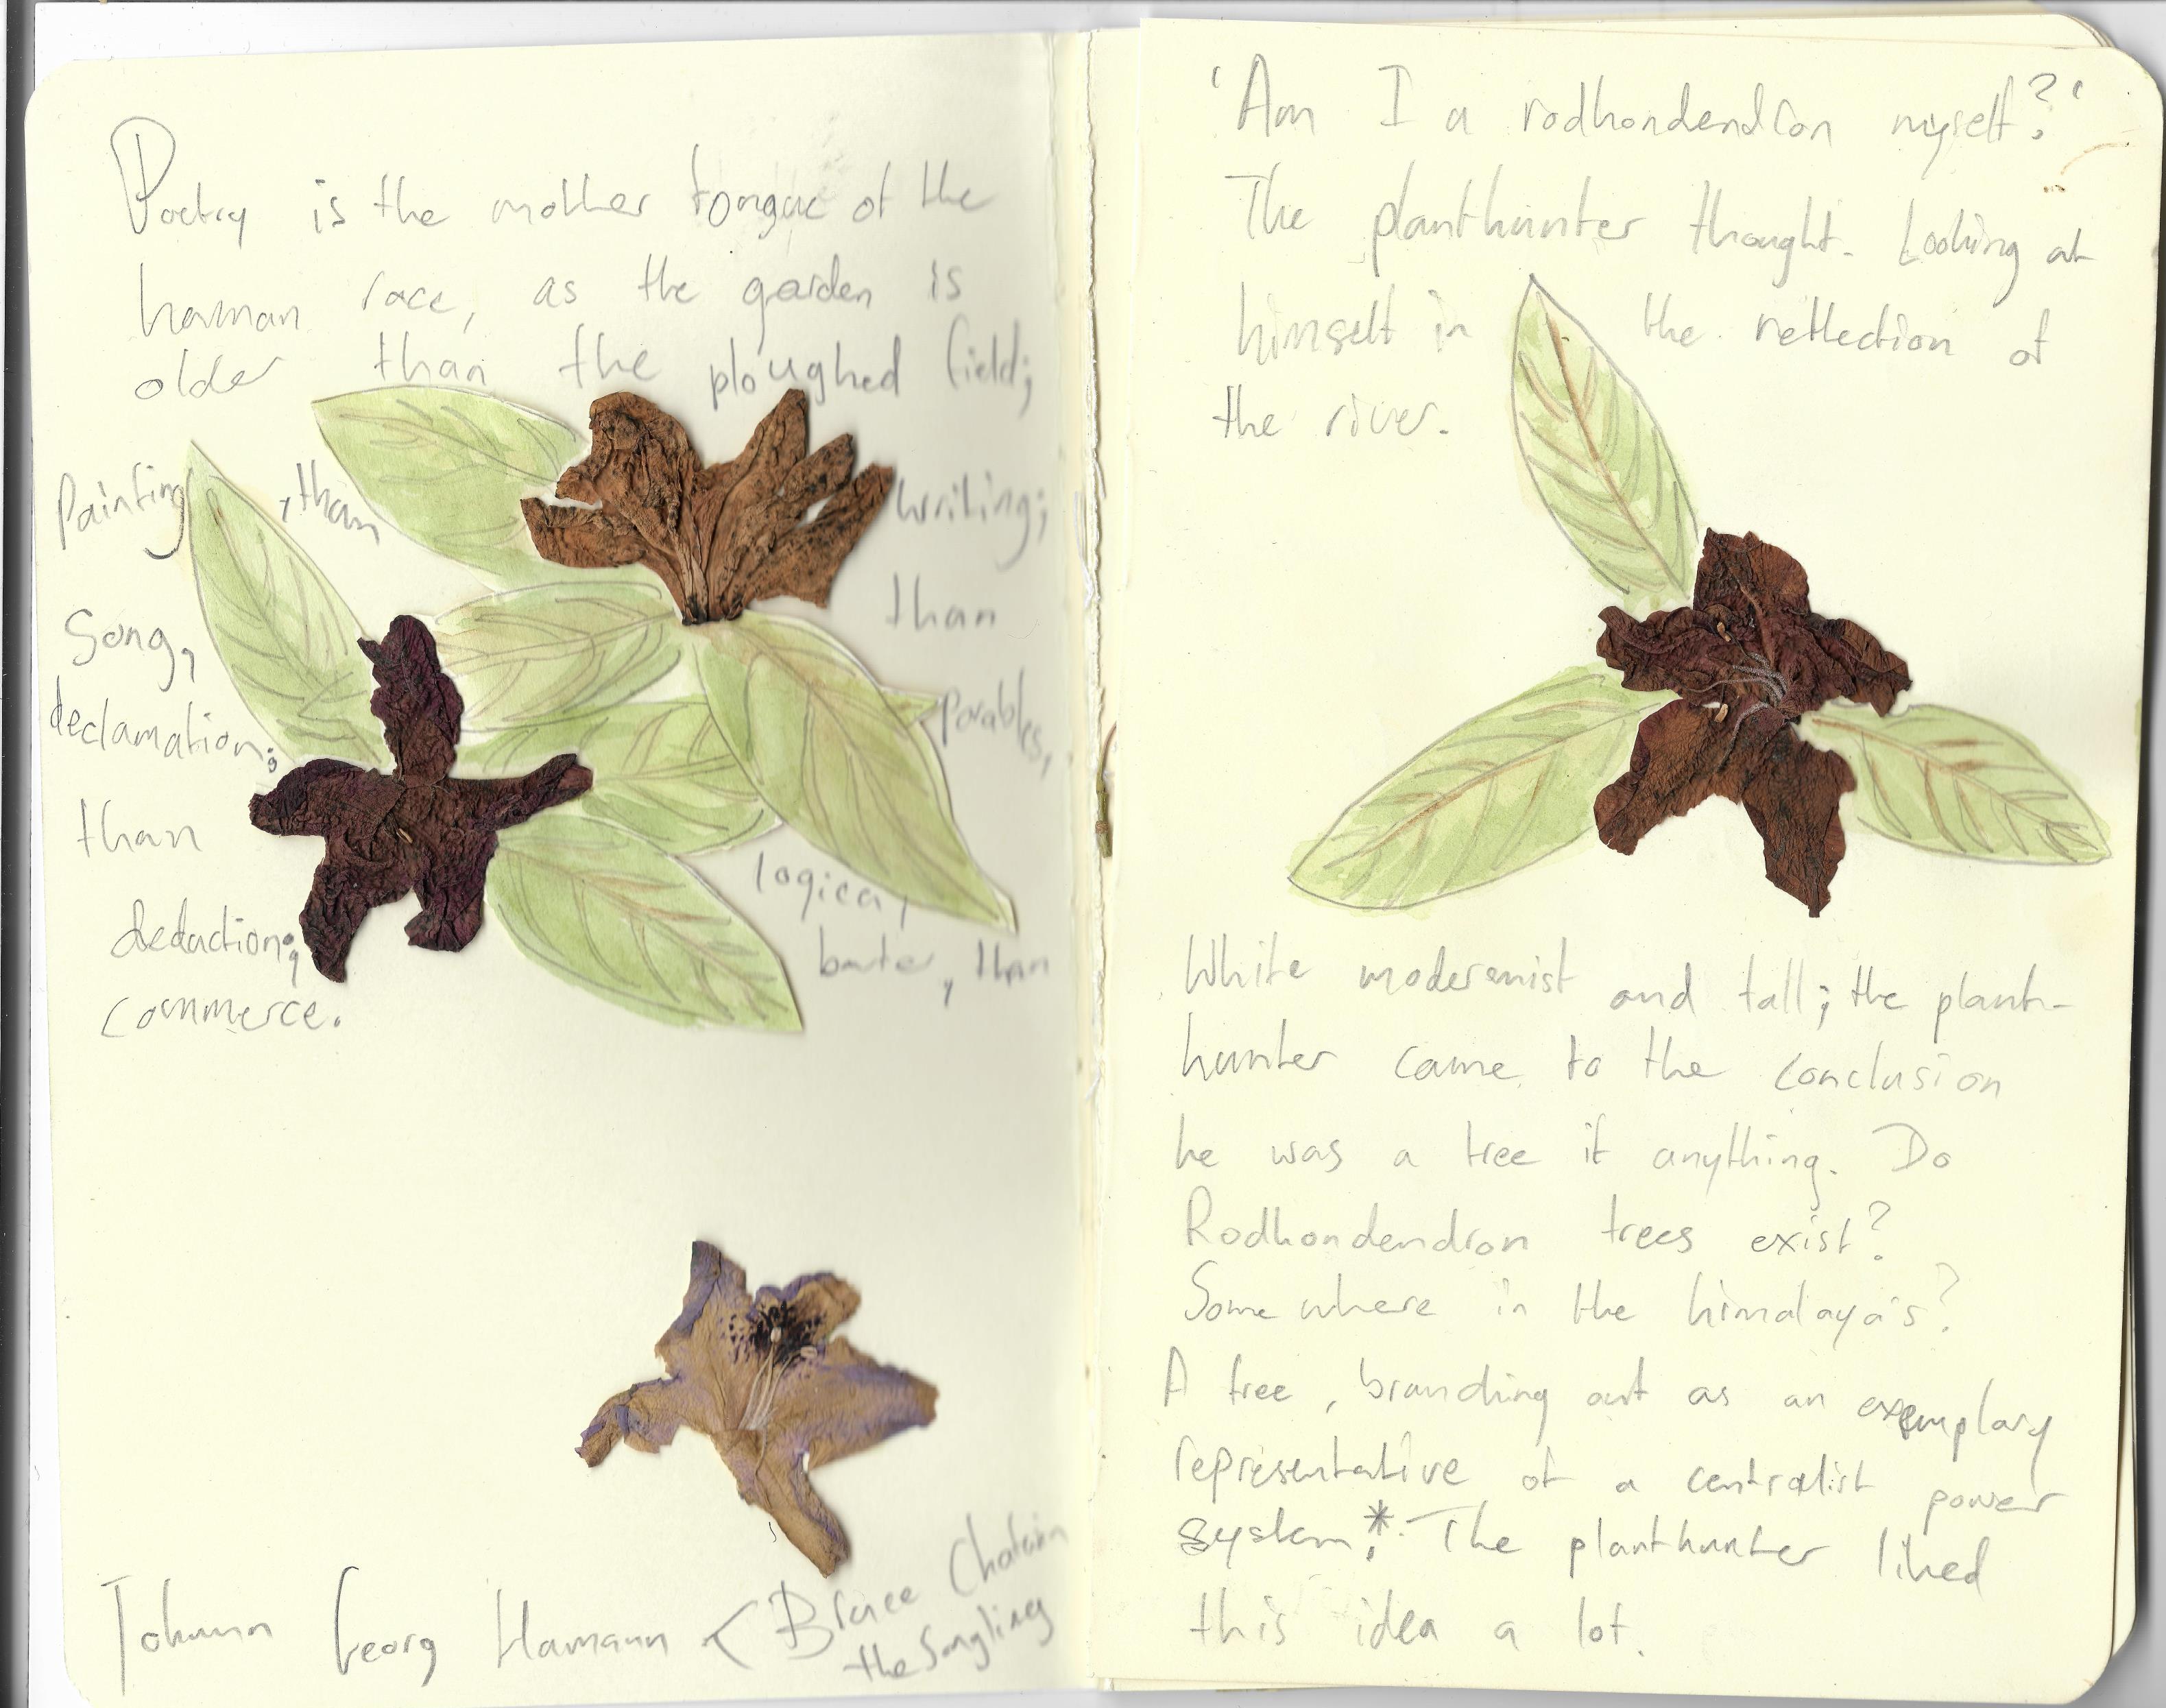 Poetry is the mother tongue of the
human race, as the garden is
older than the ploughed field;
Painting, than writing;
Song, than
declamation; parables,
than logical
deduction; barter, than
commerce.
Johann Georg Hamann < Bruce Chatwin
the Songlines
'Am I a rodhondendron myself?'
The planthunter thought. Looking at
himself in the reflection of
the river.
White modernist and tall; the plant-
hunter came to the conclusion
he was a tree if anything. Do
Rodhondendron trees exist?
Somewhere in the himalaya's?
A tree, branching out as an exemplary
representative of a centralist power
system*. The planthunter liked
this idea a lot.